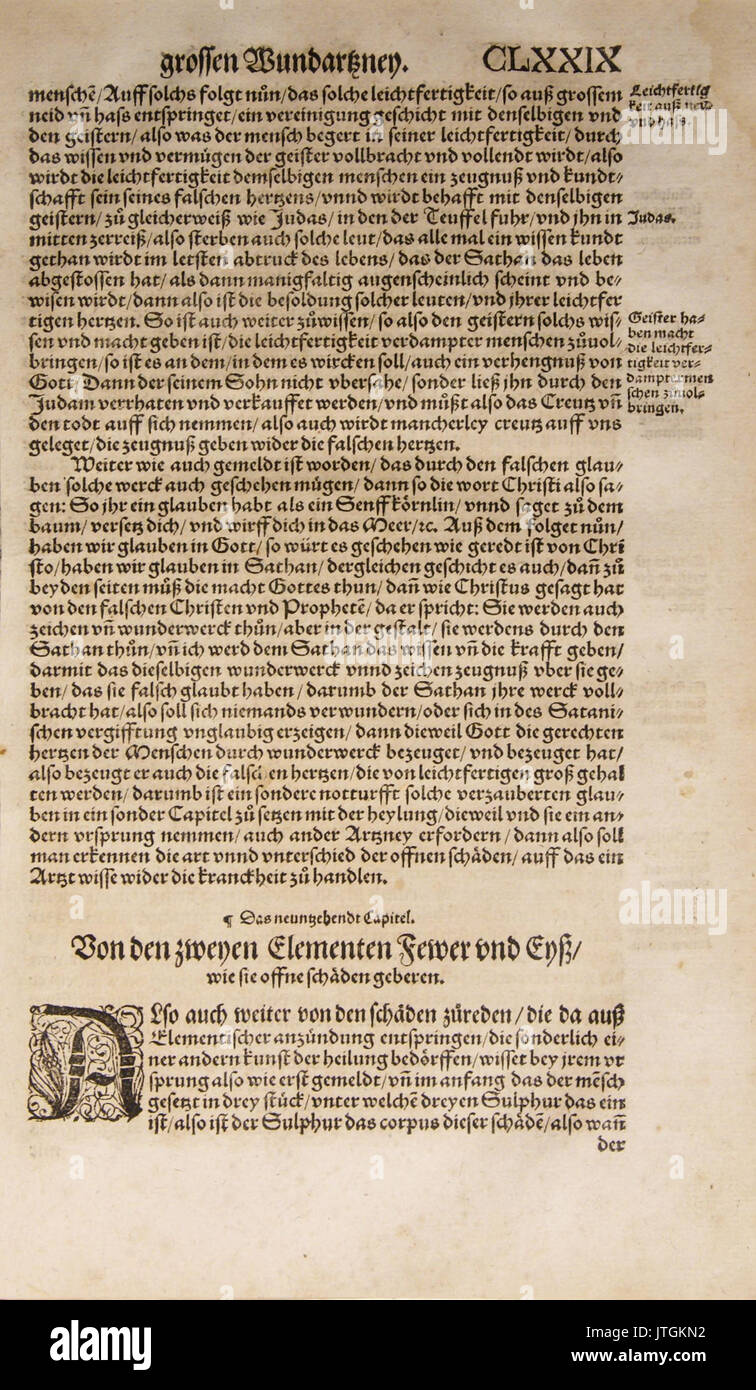 grossen Wundartzney. CLXXIX
menschẽ/Auff solchs folgt nůn/das solche leichtfertigkeit/so auß grossem
neid vñ hass entspringet/ein vereinigung geschicht mit denselbigen vnd
den geistern/also was der mensch begert in seiner leichtfertigkeit/durch
das wissen vnd vermügen der geister vollbracht vnd vollendt wirdt/also
wirdt die leichtfertigkeit demselbigen menschen ein zeugnuß vnd kundt⸗
schafft sein seines falschen hertzens/vnnd wirdt behafft mit denselbigen
geistern/zů gleicherweiß wie Judas/in den der Teuffel fuhr/vnd jhn in
mitten zerreiß/also sterben auch solche leut/das alle mal ein wissen kundt
gethan wirdt im letsten abtruck des lebens/das der Sathan das leben
abgestossen hat/als dann manigfaltig augenscheinlich scheint vnd be⸗
wisen wirdt/dann also ist die besoldung solcher leuten/vnd jhrer leichtfer
tigen hertzen. So ist auch weiter zůwissen/so also den geistern solchs wis⸗
sen vnd macht geben ist/die leichtfertigkeit verdampter menschen zůuol⸗
bringen/so ist es an dem/in dem es wircken soll/auch ein verhengnuß von
Gott/Dann der seinem Sohn nicht vbersahe/sonder ließ jhn durch den
Judam verrhaten vnd verkauffet werden/vnd můßt also das Creutz vñ
den todt auff sich nemmen/also auch wirdt mancherley creutz auff vns
geleget/die zeugnuß geben wider die falschen hertzen.
Leichtfertig
keit auß neid
vnd hass.
Judas.
Geister ha⸗
ben macht
die leichtfer⸗
tigkeit ver⸗
dampter men
schen zůuol⸗
bringen.
Weiter wie auch gemeldt ist worden/das durch den falschen glau⸗
ben solche werck auch geschehen mügen/dann so die wort Christi also sa⸗
gen: So jhr ein glauben habt als ein Senffkörnlin/vnnd saget zů dem
baum/versetz dich/vnd wirff dich in das Meer/ꝛc. Auß dem folget nůn/
haben wir glauben in Gott/so würt es geschehen wie geredt ist von Chri
sto/haben wir glauben in Sathan/dergleichen geschicht es auch/dañ zů
beyden seiten můß die macht Gottes thun/dañ wie Christus gesagt hat
von den falschen Christen vnd Prophetẽ/da er spricht: Sie werden auch
zeichen vñ wunderwerck thůn/aber in der gestalt/sie werdens durch den
Sathan thůn/vñ ich werd dem Sathan das wissen vñ die krafft geben/
darmit das dieselbigen wunderwerck vnnd zeichen zeugnuß vber sie ge⸗
ben/das sie falsch glaubt haben/darumb der Sathan jhre werck voll⸗
bracht hat/also soll sich niemands verwundern/oder sich in des Satani⸗
schen vergifftung vnglaubig erzeigen/dann dieweil Gott die gerechten
hertzen der Menschen durch wunderwerck bezeuget/vnd bezeuget hat/
also bezeugt er auch die falschen hertzen/die von leichtfertigen groß gehal
ten werden/darumb ist ein sondere notturfft solche verzauberten glau⸗
ben in ein sonder Capitel zů setzen mit der heylung/dieweil vnd sie ein an⸗
dern vrsprung nemmen/auch ander Artzney erfordern/dann also soll
man erkennen die art vnnd vnterschied der offnen schäden/auff das ein
Artzt wisse wider die kranckheit zů handlen.
¶ Das neuntzehendt Capitel.
Von den zweyen Elementen Fewer vnd Eyß/
wie sie offne schäden geberen.
Also auch weiter von den schäden zůreden/die da auß
Elementischer anzündung entspringen/die sonderlich ei⸗
ner andern kunst der heilung bedörffen/wisset bey jrem vr
sprung also wie erst gemeldt/vñ im anfang das der mẽsch
gesetzt in drey stück/vnter welchẽ dreyen Sulphur das ein
ist/also ist der Sulphur das corpus dieser schädẽ/also wañ
der
alamy stock photo
alamy
Image ID: JTGKN2
www.alamy.com